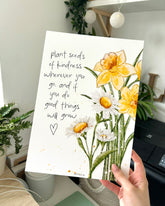 plant seeds
of kindness
wherever you
go and if
you do
good things
will grow